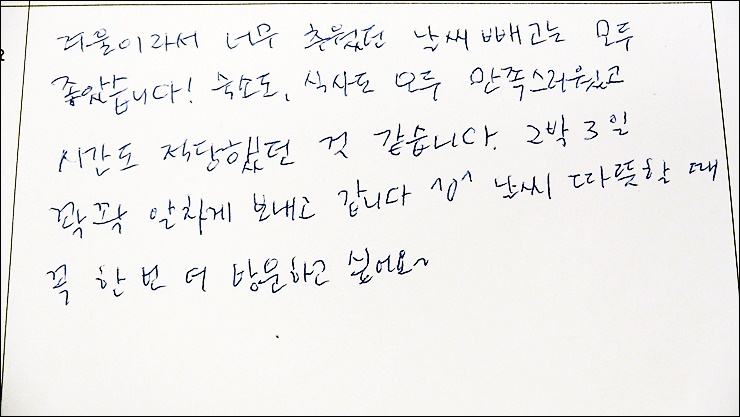 겨울이라서 너무 추웠던 날씨 빼고는 모두
좋았습니다! 숙소도, 식사도 모두 만족스러웠고
시간도 적당했던 것 같습니다. 2박 3일
꽉꽉 알차게 보내고 갑니다 ^0^ 날씨 따뜻할 때
꼭 한 번 더 방문하고 싶어요~